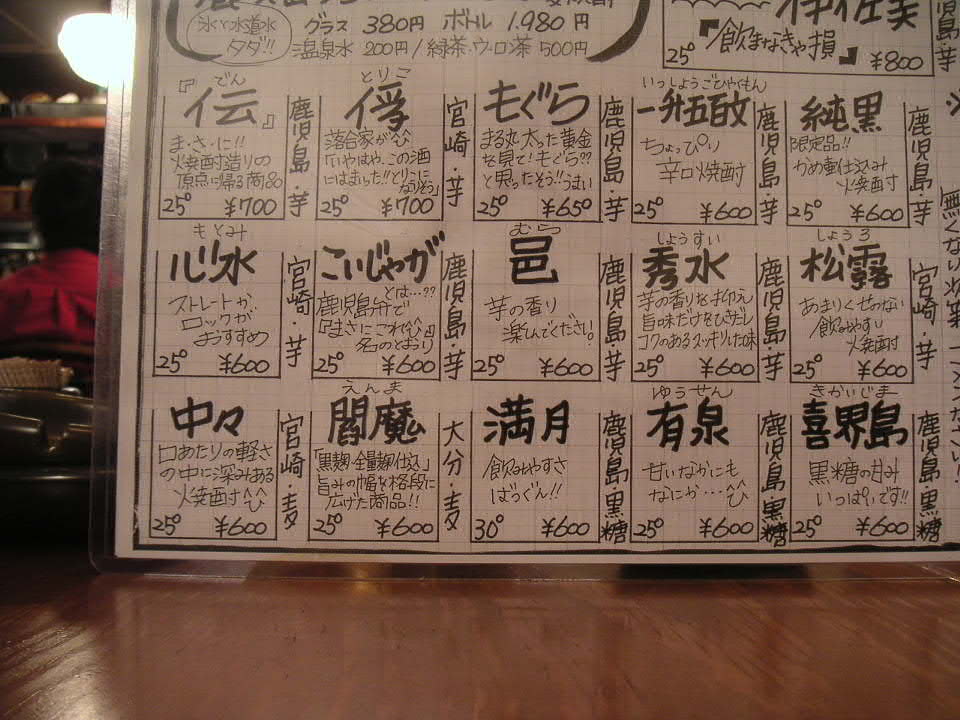 グラス 380円 ボトル 1.980円
氷と水道水
タダ!!
温泉水 200円/緑茶・ウーロン茶 500円
伊佐美
『飲まなきゃ損』
25° ¥800
でん
『伝』
鹿児島・芋
ま・さ・に!!
焼酎造りの
頂点に帰る商品
25° ¥700
とりこ
俘
宮崎・芋
落合家が
「いやはや、この酒
にはまった!!とりこに
なりそう」
25° ¥700
もぐら
鹿児島・芋
まる丸太った黄金
を見て!もぐら??
と思ったそう!!うまい
25° ¥650
いっしょうごひゃくもん
一升五百文
鹿児島・芋
ちょっぴり
辛口焼酎
25° ¥600
純黒
鹿児島・芋
限定品!!
かめ壷仕込み
焼酎
25° ¥600
もとみ
心水
宮崎・芋
ストレートか
ロックが
おすすめ
25° ¥600
こいじゃが
鹿児島・芋
とは…??
鹿児島弁で
『まさにこれ』
名のとおり
25° ¥600
むら
邑
鹿児島・芋
芋の香り
楽しんでください。
25° ¥600
しょうすい
秀水
鹿児島・芋
芋の香りを抑え
旨味だけをひきだし
コクのあるスッキリした味
25° ¥600
しょうろ
松露
宮崎・芋
あまりくせのない
飲みやすい
焼酎
25° ¥600
中々
宮崎・麦
口あたりの軽さ
の中に深みある
焼酎
25° ¥600
えんま
閻魔
大分・麦
「黒麹・全量麹仕込」
旨みの幅を格段に
広げた商品!!
25° ¥600
満月
鹿児島・黒糖
飲みやすさ
ばつぐん!!
30° ¥600
ゆうせん
有泉
鹿児島・黒糖
甘いなかにも
なにか…
25° ¥600
きかいじま
喜界島
鹿児島・黒糖
黒糖の甘み
いっぱいです!!
25° ¥600